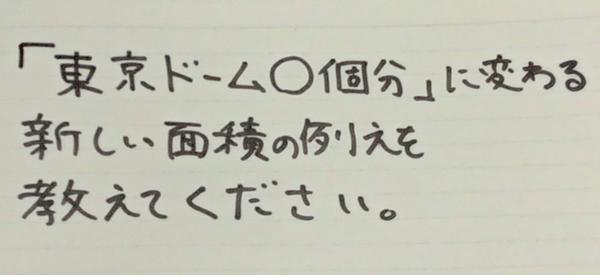 「東京ドーム○個分」に変わる
新しい面積の例えを
教えてください。